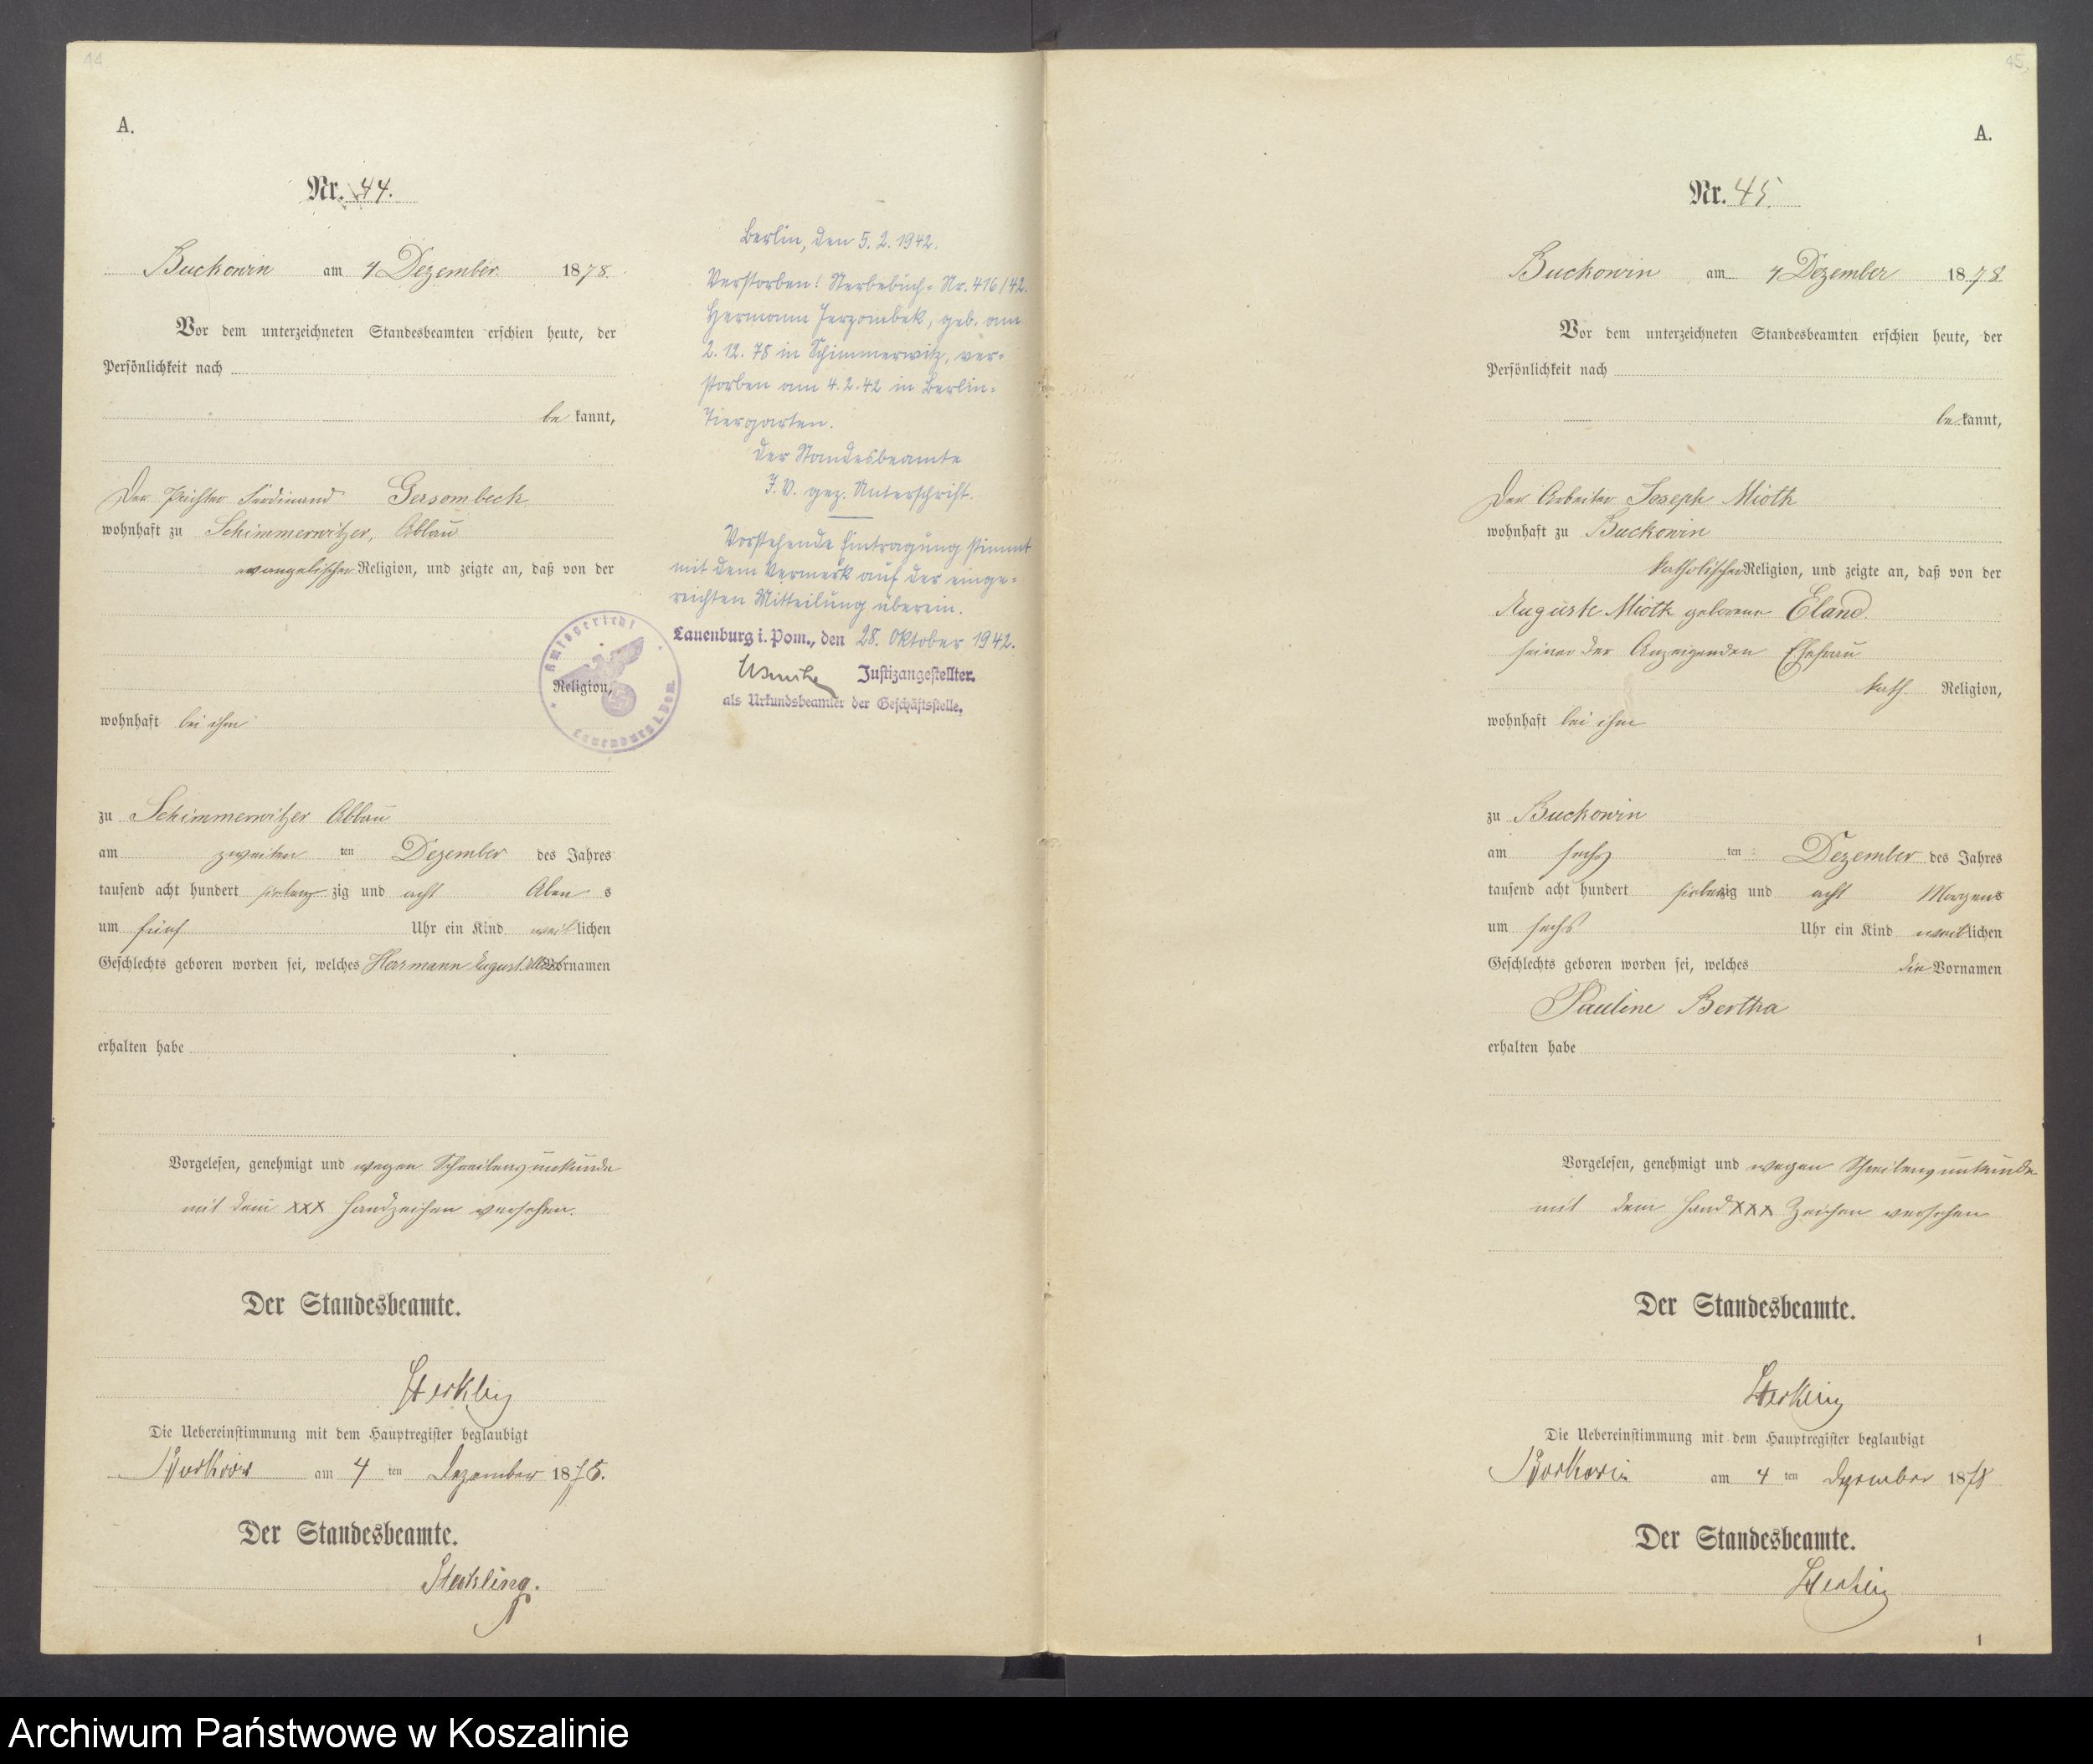 44
A.
Nr. 44.
Buckowin am 4 Dezember 1878.
Vor dem unterzeichneten Standesbeamten erschien heute, der
Persönlichkeit nach
be kannt,
Der Ferdinand Gersombeck
wohnhaft zu Schimmerwitzer, Abbau
evangelischer Religion, und zeigte an, daß von der
Religion,
wohnhaft bei ihm
zu Schimmerwitzer Abbau
am zweiten ten Dezember des Jahres
tausend acht hundert siebenzig und acht Aben s
um fünf Uhr ein Kind weiblichen
Geschlechts geboren worden sei, welches Herrmann August Vornamen
erhalten habe
Vorgelesen, genehmigt und wegen Schreibensunkunde
mit dem xxx Handzeichen versehen.
Der Standesbeamte.
Die Uebereinstimmung mit dem Hauptregister beglaubigt
am 4 ten Dezember 1878.
Der Standesbeamte.
Sterkling.
Berlin, den 5. 2. 1942.
Verstorben! Sterbebuch-Nr. 416/42.
Hermann Jerzombek, geb. am
2. 12. 78 in Schimmerwitz, ver-
storben am 4. 2. 42 in Berlin-
Tiergarten.
Der Standesbeamte
I. V. gez. Unterschrift.
Vorstehende Eintragung stimmt
mit dem Vermerk auf der einge-
reichten Mitteilung überein.
Lauenburg i. Pom., den 28. Oktober 1942.
Justizangestellter.
als Urkundsbeamter der Geschäftsstelle.
Amtsgericht
Lauenburg Pom.
45.
A.
Nr. 45.
Buckowin am 4 Dezember 1878.
Vor dem unterzeichneten Standesbeamten erschien heute, der
Persönlichkeit nach
be kannt,
Der Arbeiter Joseph Mioth
wohnhaft zu Buckowin
katholischer Religion, und zeigte an, daß von der
Auguste Mioth geborene Eland.
seiner des Anzeigenden Ehefrau
kath. Religion,
wohnhaft bei ihm
zu Buckowin
am ten Dezember des Jahres
tausend acht hundert siebenzig und acht Morgens
um sechs Uhr ein Kind weiblichen
Geschlechts geboren worden sei, welches die Vornamen
Pauline Bertha
erhalten habe
Vorgelesen, genehmigt und wegen Schreibensunkunde
mit dem Hand xxx Zeichen versehen
Der Standesbeamte.
Die Uebereinstimmung mit dem Hauptregister beglaubigt
am 4 ten Dezember 1878
Der Standesbeamte.
1
Archiwum Państwowe w Koszalinie